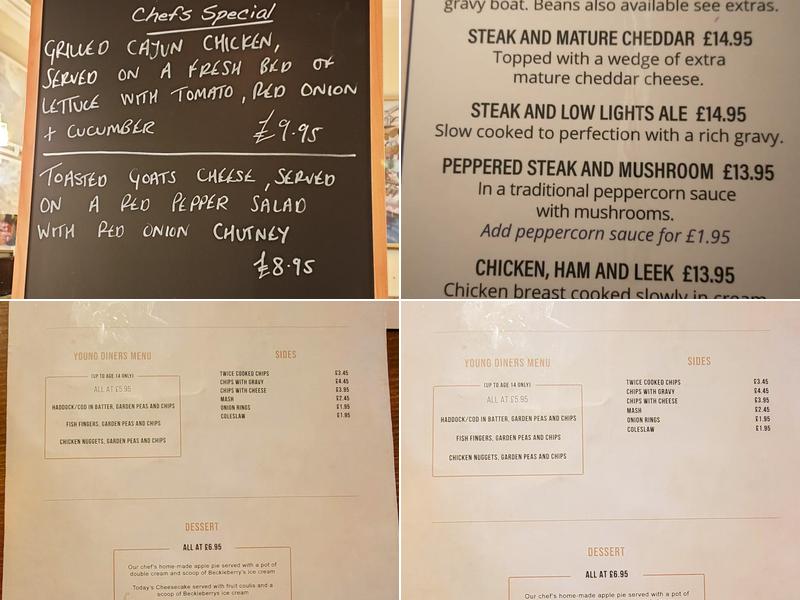 Chefs Special
GRILLED CAJUN CHICKEN,
SERVED ON A FRESH BED OF
LETTUCE WITH TOMATO, RED ONION
+ CUCUMBER £9.95
TOASTED GOATS CHEESE, SERVED
ON A RED PEPPER SALAD
WITH RED ONION CHUTNEY
£8.95
gravy boat. Beans also available see extras.
STEAK AND MATURE CHEDDAR £14.95
Topped with a wedge of extra
mature cheddar cheese.
STEAK AND LOW LIGHTS ALE £14.95
Slow cooked to perfection with a rich gravy.
PEPPERED STEAK AND MUSHROOM £13.95
In a traditional peppercorn sauce
with mushrooms.
Add peppercorn sauce for £1.95
CHICKEN, HAM AND LEEK £13.95
Chicken breast cooked slowly in cream
YOUNG DINERS MENU
(UP TO AGE 14 ONLY)
ALL AT £5.95
HADDOCK/COD IN BATTER, GARDEN PEAS AND CHIPS
FISH FINGERS, GARDEN PEAS AND CHIPS
CHICKEN NUGGETS, GARDEN PEAS AND CHIPS
SIDES
TWICE COOKED CHIPS £3.45
CHIPS WITH GRAVY £4.45
CHIPS WITH CHEESE £3.95
MASH £2.45
ONION RINGS £1.95
COLESLAW £1.95
DESSERT
ALL AT £6.95
Our chef's home-made apple pie served with a pot of
double cream and scoop of Beckleberry's ice cream
Today's Cheesecake served with fruit coulis and a
scoop of Beckleberrys ice cream
YOUNG DINERS MENU
(UP TO AGE 14 ONLY)
ALL AT £5.95
HADDOCK/COD IN BATTER, GARDEN PEAS AND CHIPS
FISH FINGERS, GARDEN PEAS AND CHIPS
CHICKEN NUGGETS, GARDEN PEAS AND CHIPS
SIDES
TWICE COOKED CHIPS £3.45
CHIPS WITH GRAVY £4.45
CHIPS WITH CHEESE £3.95
MASH £2.45
ONION RINGS £1.95
COLESLAW £1.95
DESSERT
ALL AT £6.95
Our chef's home-made apple pie served with a pot of